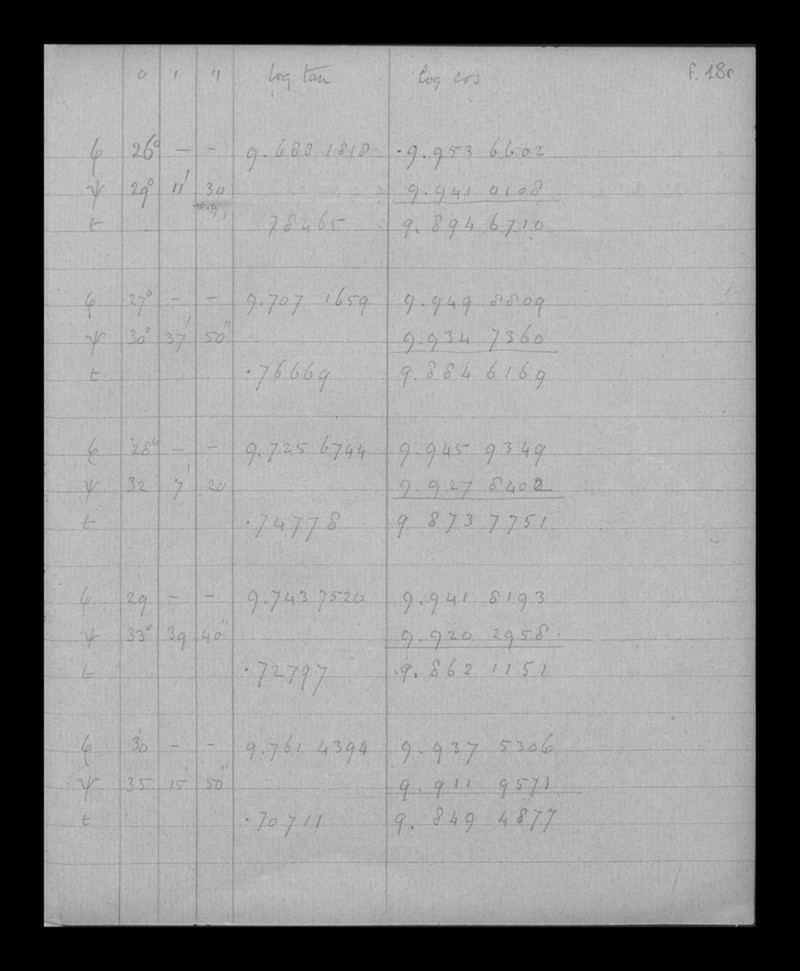 0 ' " log tan log cos f. 18r
φ 26° – – 9.688 1818 .9.953 6602
ψ 29° 11' 30 9.941 0108
t 78465 9.894 6710
φ 27° – – 9.707 1659 9.949 8809
ψ 30° 37' 50" 9.934 7360
t .76669 9.884 6169
φ 28° – – 9.725 6744 9.945 9349
ψ 32 7' 20 9.927 8402
t .74778 9 873 7751
φ 29 – – 9.743 7520 9.941 8193
ψ 33° 39 40" 9.920 2958
t .72797 .9.862 1151
φ 30 – – 9.761 4394 9.937 5306
ψ 35 15' 50" 9.911 9571
t .70711 9.849 4877